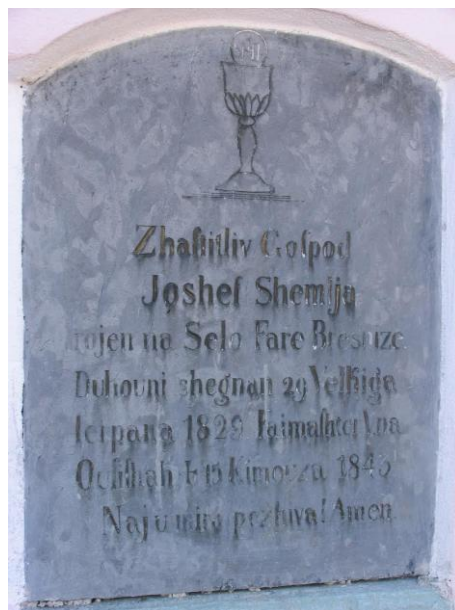 IHI
Zhaſtitliv Goſpod
Joshef Shemlja
rojen na Selo Fare Bresnize
Duhouni shegnan 29 Velkiga
ſerpana 1829 Faimaſhter
1845
Naj u miru pozhiva! Amen